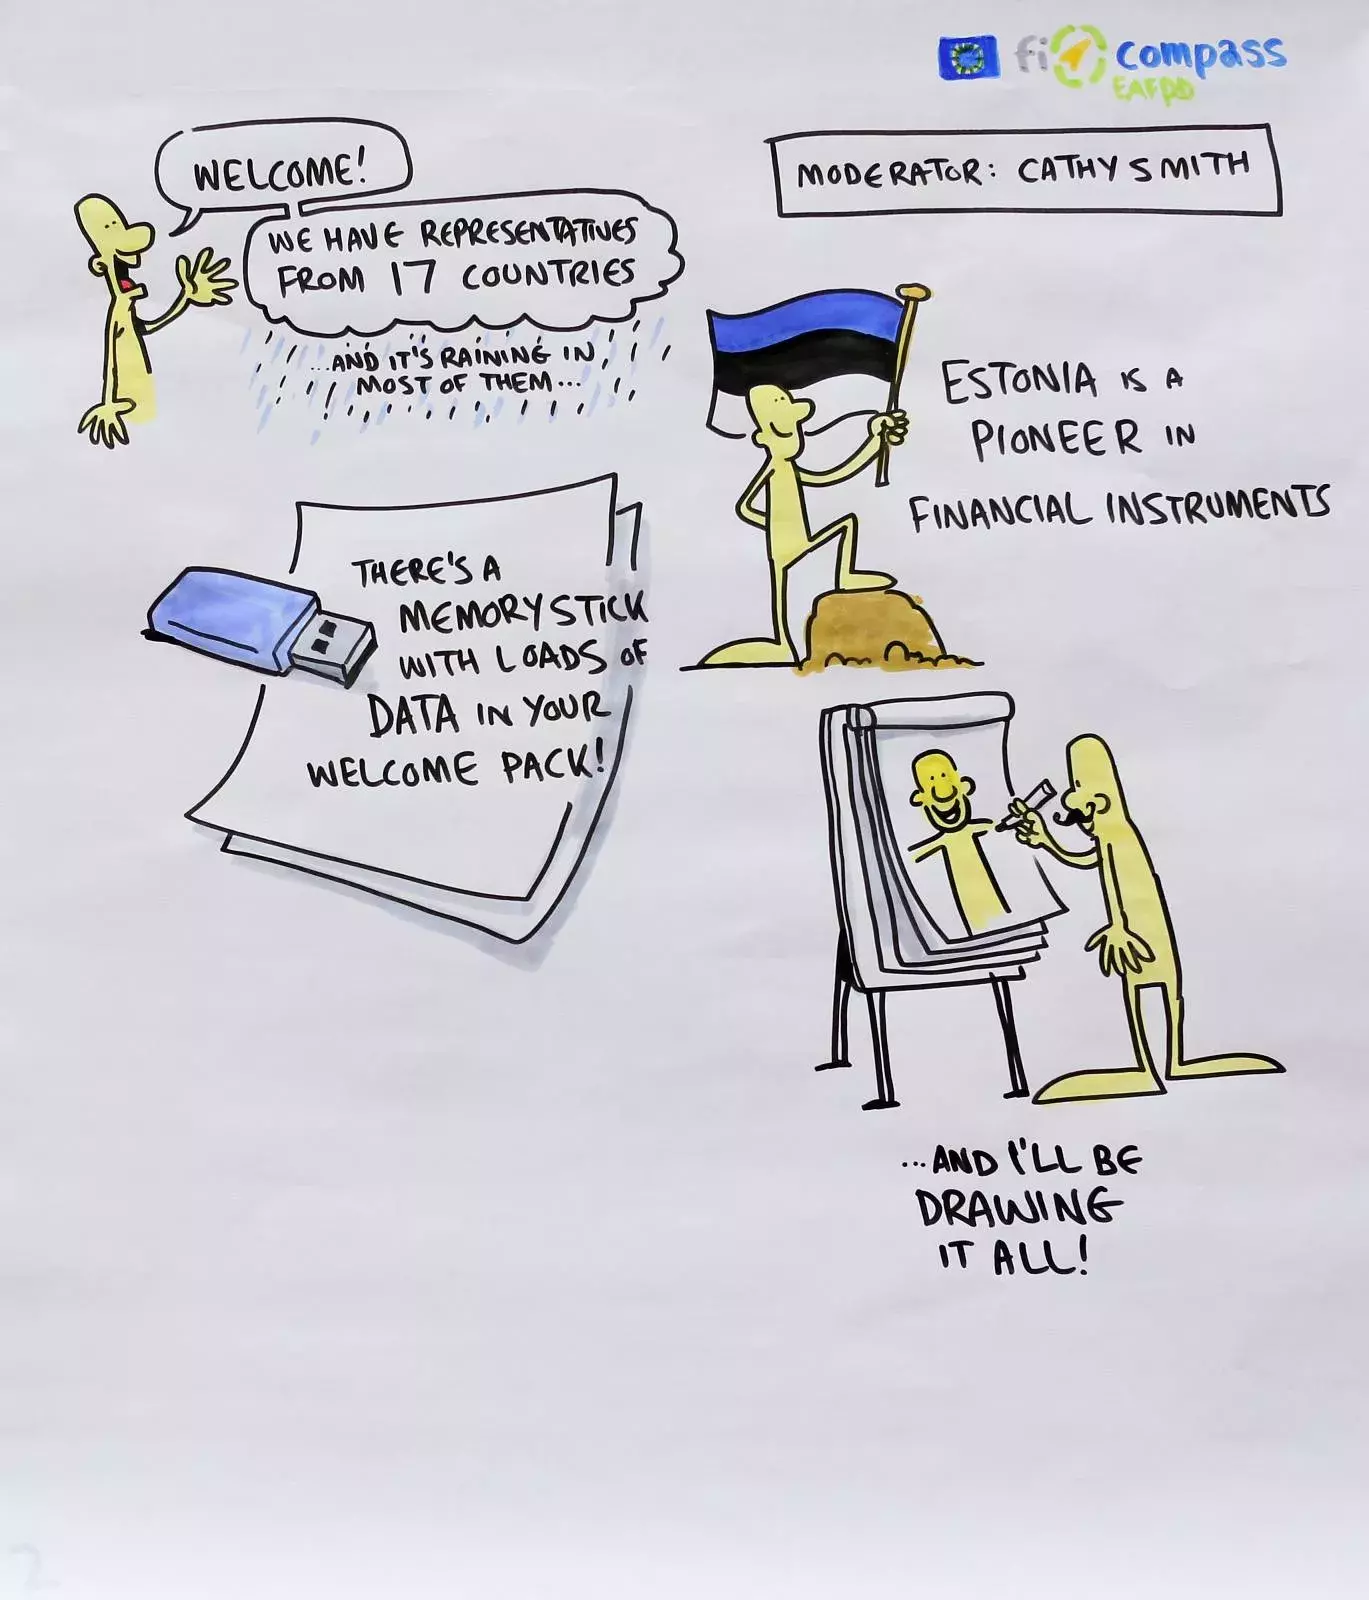 fi compass
EAFRD
WELCOME!
WE HAVE REPRESENTATIVES
FROM 17 COUNTRIES
...AND IT'S RAINING IN
MOST OF THEM...
MODERATOR: CATHY SMITH
ESTONIA IS A
PIONEER IN
FINANCIAL INSTRUMENTS
THERE'S A
MEMORY STICK
WITH LOADS OF
DATA IN YOUR
WELCOME PACK!
...AND I'LL BE
DRAWING
IT ALL!
2